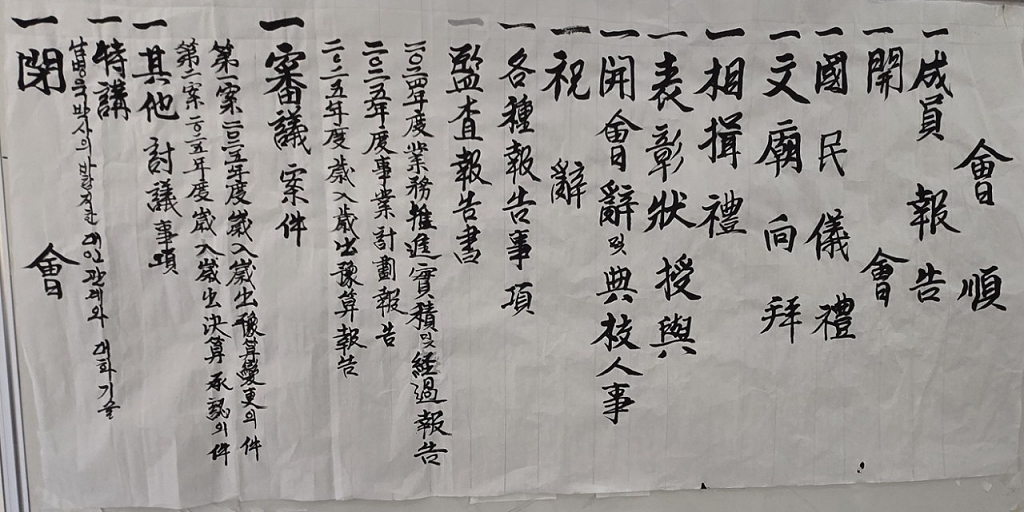 會順
一 成員報告
一 開會
一 國民儀禮
一 文廟向拜
一 相揖禮
一 表彰狀授與
一 開會辭 및 典校人事
一 祝辭
一 各種報告事項
一 監査報告書
二〇二四年度 業務推進實積 및 經過報告
二〇二五年度 事業計劃報告
二〇二五年度 歲入歲出豫算報告
一 審議案件
第一案 二〇二五年度 歲入歲出豫算變更의 件
第二案 二〇二五年度 歲入歲出決算 承認의 件
一 其他討議事項
一 特講
박사의 대인관계와 대화기술
一 閉會